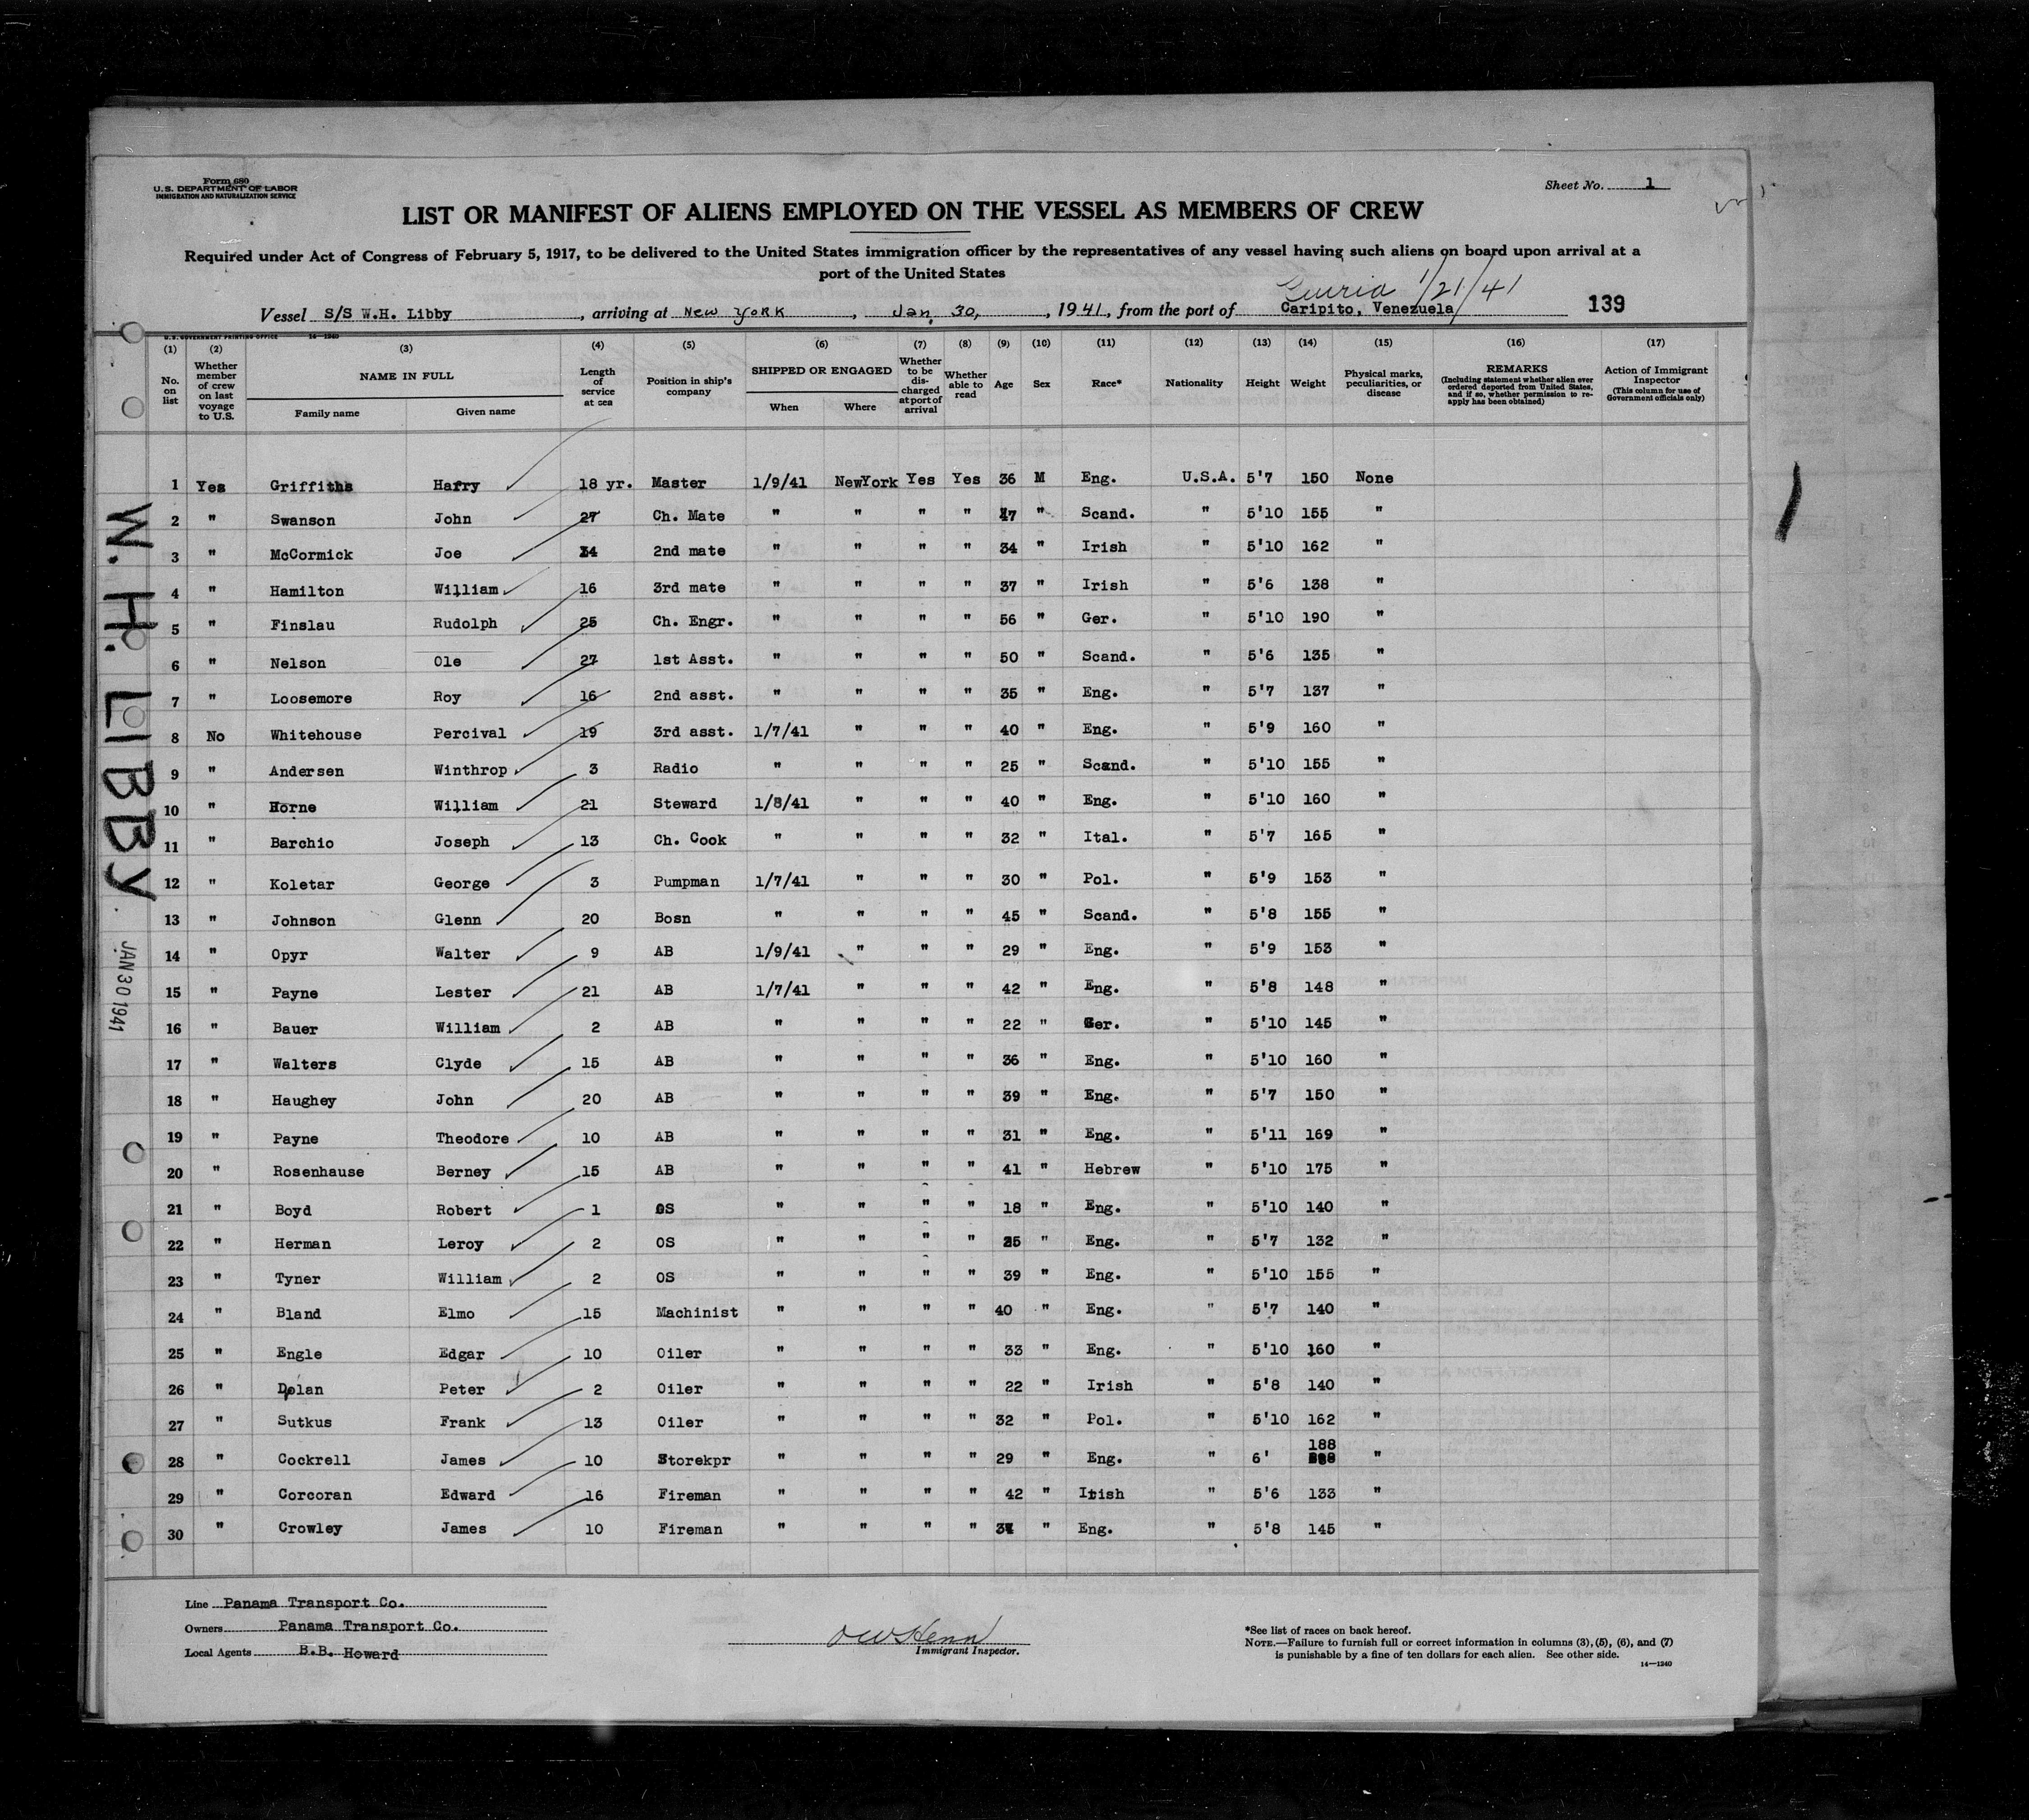 Form 680
U.S. DEPARTMENT OF LABOR
IMMIGRATION AND NATURALIZATION SERVICE
Sheet No. 1
LIST OR MANIFEST OF ALIENS EMPLOYED ON THE VESSEL AS MEMBERS OF CREW
Required under Act of Congress of February 5, 1917, to be delivered to the United States immigration officer by the representatives of any vessel having such aliens on board upon arrival at a
port of the United States
Guiria 1/21/41
Vessel S/S W.H. Libby, arriving at New York, Jan, 30, 1941, from the port of Caripito, Venezuela 139
U.S. GOVERNMENT PRINTING OFFICE 14—1240
(1) (2) (3) (4) (5) (6) (7) (8) (9) (10) (11) (12) (13) (14) (15) (16) (17)
No. on list
Whether member of crew on last voyage to U.S.
NAME IN FULL
Family name Given name
Length of service at sea
Position in ship's company
SHIPPED OR ENGAGED
When Where
Whether to be discharged at port of arrival
Whether able to read
Age Sex Race* Nationality Height Weight
Physical marks, peculiarities, or disease
REMARKS
(Including statement whether alien ever ordered deported from United States, and if so, whether permission to reapply has been obtained)
Action of Immigrant Inspector
(This column for use of Government officials only)
1 Yes Griffiths Harry 18 yr. Master 1/9/41 NewYork Yes Yes 36 M Eng. U.S.A. 5'7 150 None
2 " Swanson John 27 Ch. Mate " " " " 47 " Scand. " 5'10 155 "
3 " McCormick Joe 2nd mate " " " " 34 " Irish " 5'10 162 "
4 " Hamilton William 16 3rd mate " " " " 37 " Irish " 5'6 138 "
5 " Finslau Rudolph 25 Ch. Engr. " " " " 56 " Ger. " 5'10 190 "
6 " Nelson Ole 27 1st Asst. " " " " 50 " Scand. " 5'6 135 "
7 " Loosemore Roy 16 2nd asst. " " " " 35 " Eng. " 5'7 137 "
8 No Whitehouse Percival 19 3rd asst. 1/7/41 " " " 40 " Eng. " 5'9 160 "
9 " Andersen Winthrop 3 Radio " " " " 25 " Scand. " 5'10 155 "
10 " Horne William 21 Steward 1/8/41 " " " 40 " Eng. " 5'10 160 "
11 " Barchio Joseph 13 Ch. Cook " " " " 32 " Ital. " 5'7 165 "
12 " Koletar George 3 Pumpman 1/7/41 " " " 30 " Pol. " 5'9 153 "
13 " Johnson Glenn 20 Bosn " " " " 45 " Scand. " 5'8 155 "
14 " Opyr Walter 9 AB 1/9/41 " " " 29 " Eng. " 5'9 153 "
15 " Payne Lester 21 AB 1/7/41 " " " 42 " Eng. " 5'8 148 "
16 " Bauer William 2 AB " " " " 22 " Ger. " 5'10 145 "
17 " Walters Clyde 15 AB " " " " 36 " Eng. " 5'10 160 "
18 " Haughey John 20 AB " " " " 39 " Eng. " 5'7 150 "
19 " Payne Theodore 10 AB " " " " 31 " Eng. " 5'11 169 "
20 " Rosenhause Berney 15 AB " " " " 41 " Hebrew " 5'10 175 "
21 " Boyd Robert 1 OS " " " " 18 " Eng. " 5'10 140 "
22 " Herman Leroy 2 OS " " " " 25 " Eng. " 5'7 132 "
23 " Tyner William 2 OS " " " " 39 " Eng. " 5'10 155 "
24 " Bland Elmo 15 Machinist " " " " 40 " Eng. " 5'7 140 "
25 " Engle Edgar 10 Oiler " " " " 33 " Eng. " 5'10 160 "
26 " Dolan Peter 2 Oiler " " " " 22 " Irish " 5'8 140 "
27 " Sutkus Frank 13 Oiler " " " " 32 " Pol. " 5'10 162 "
28 " Cockrell James 10 Storekpr " " " " 29 " Eng. " 6' 188 "
29 " Corcoran Edward 16 Fireman " " " " 42 " Irish " 5'6 133 "
30 " Crowley James 10 Fireman " " " " " Eng. " 5'8 145 "
W. H. LIBBY
JAN 30 1941
Line Panama Transport Co.
Owners Panama Transport Co.
Local Agents B.B. Howard
Immigrant Inspector.
*See list of races on back hereof.
NOTE.—Failure to furnish full or correct information in columns (3), (5), (6), and (7)
is punishable by a fine of ten dollars for each alien. See other side.
14—1240